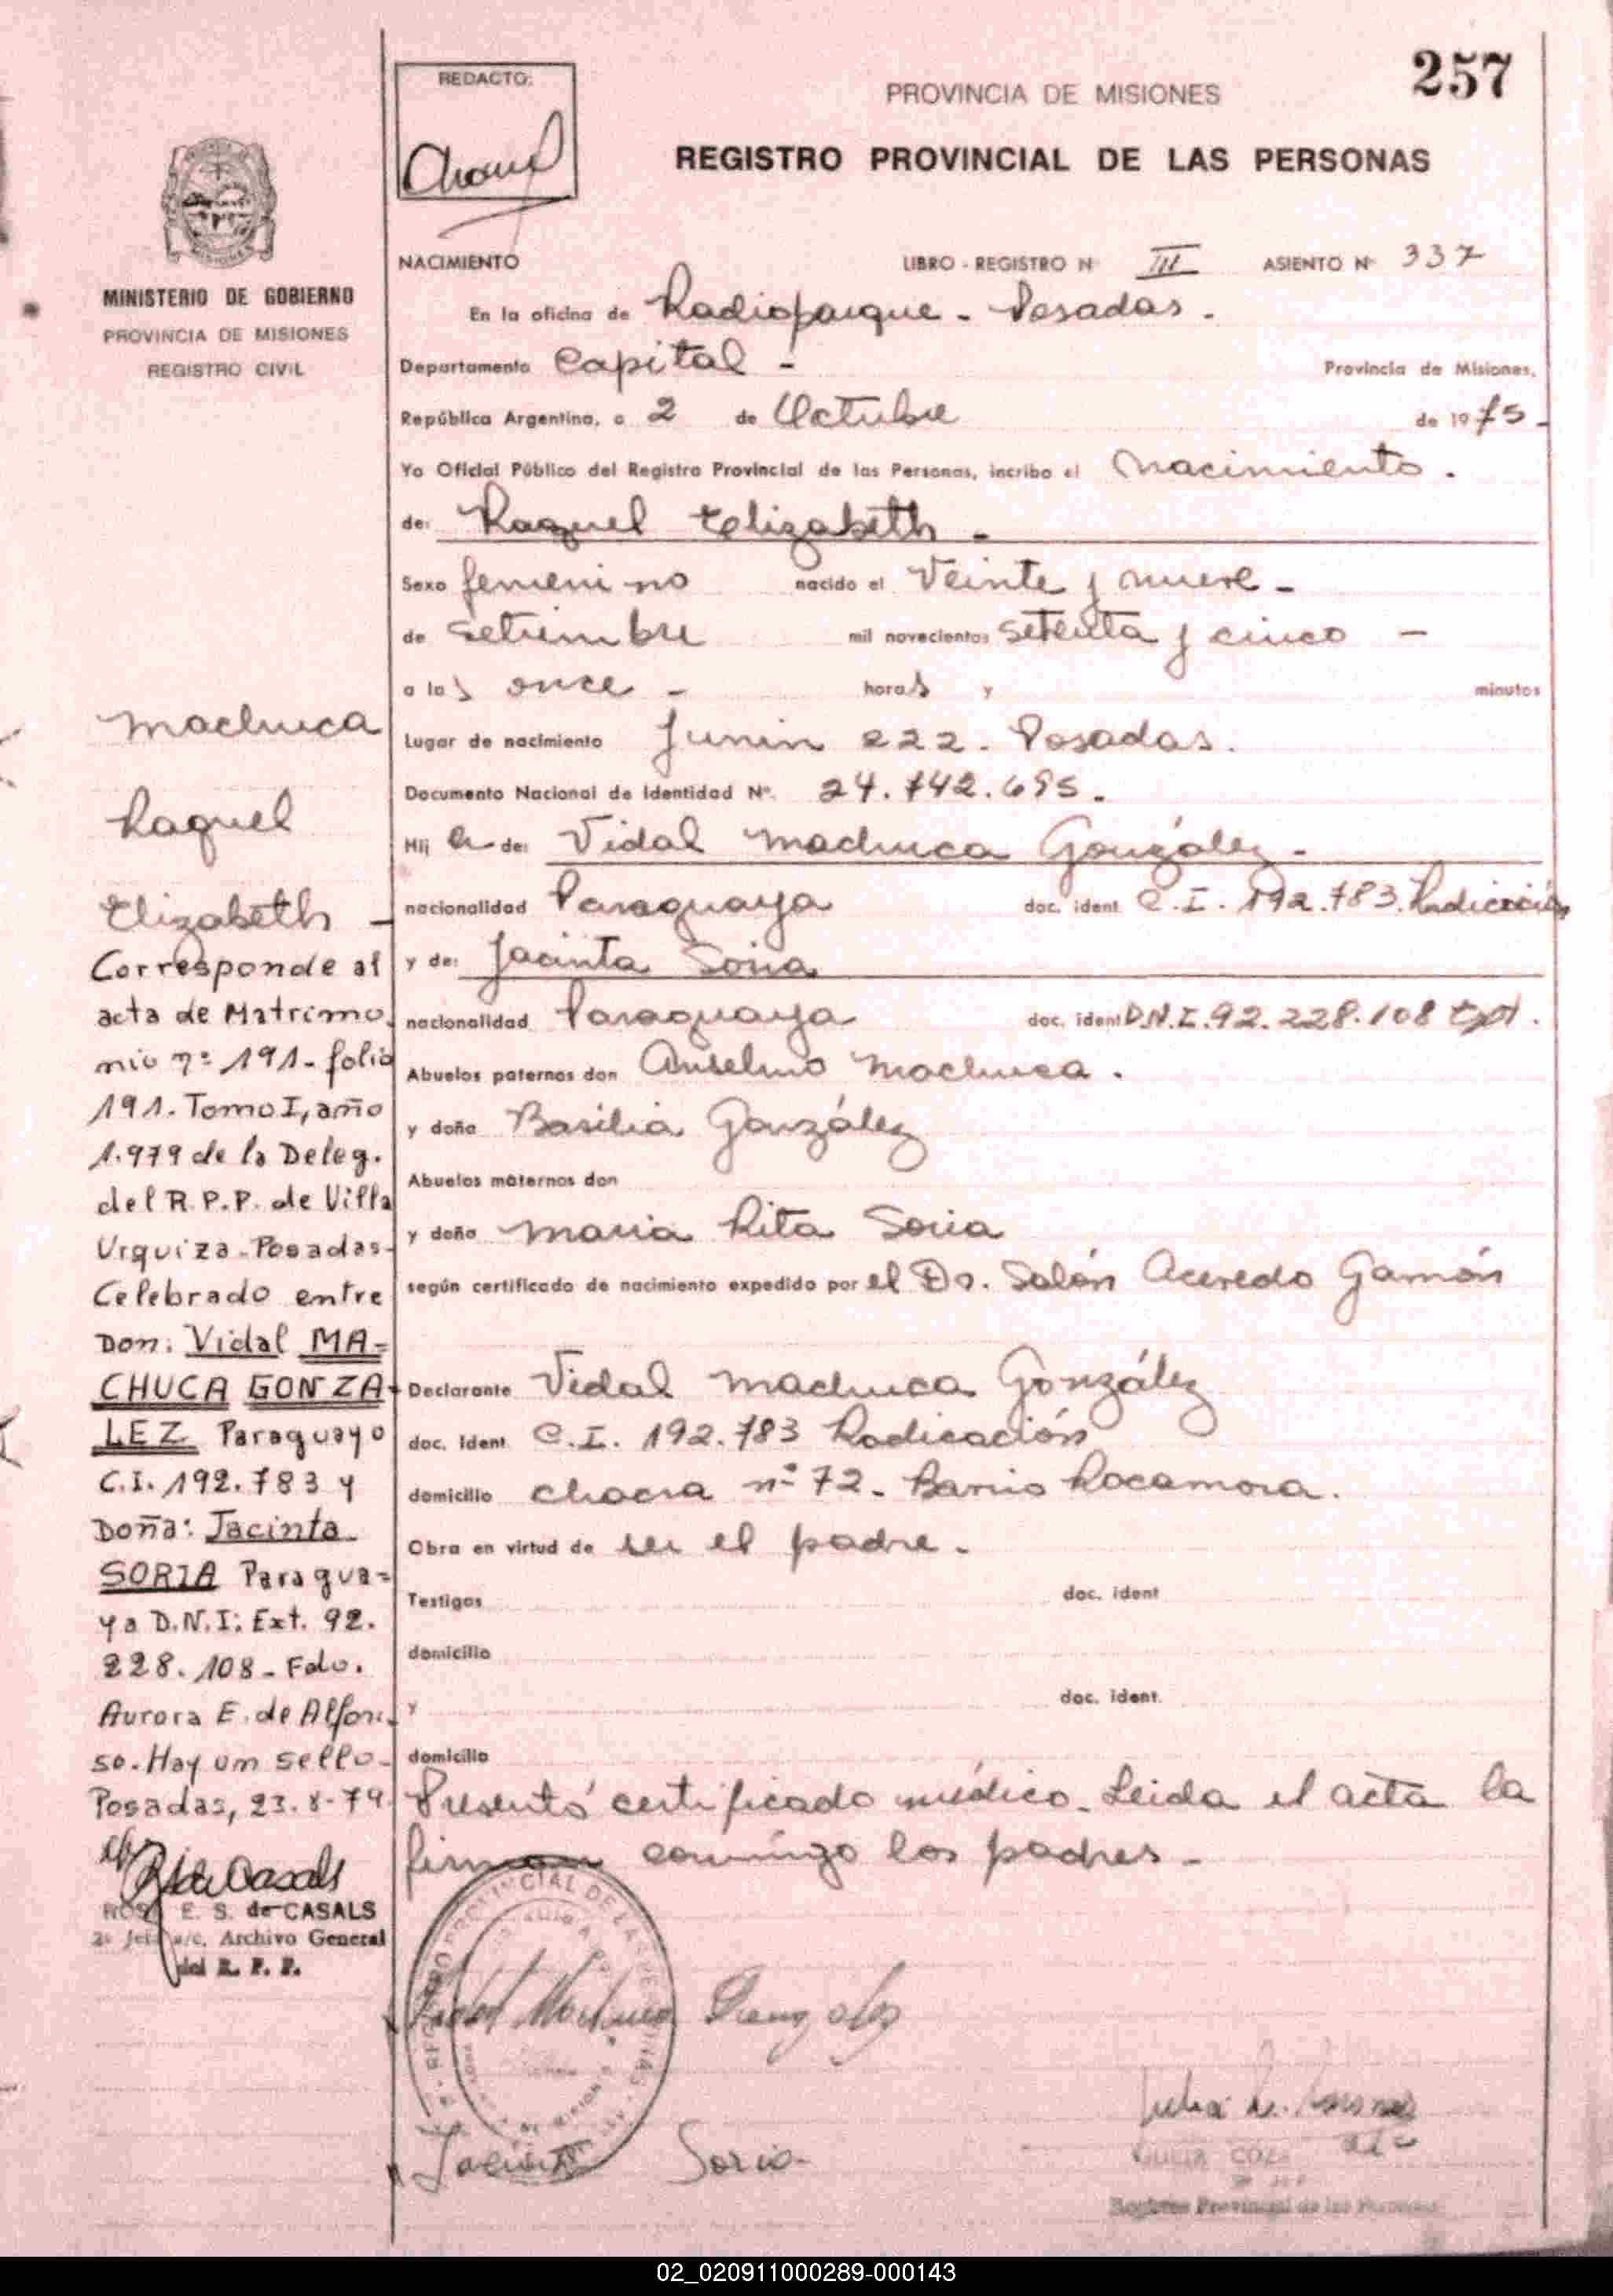 257
REDACTO:
PROVINCIA DE MISIONES
REGISTRO PROVINCIAL DE LAS PERSONAS
MINISTERIO DE GOBIERNO
PROVINCIA DE MISIONES
REGISTRO CIVIL
NACIMIENTO LIBRO - REGISTRO N III ASIENTO Nº 337
En la oficina de Radioparque - Posadas.
Departamento Capital - Provincia de Misiones,
República Argentina, a 2 de Octubre de 1975-
Yo Oficial Público del Registro Provincial de las Personas, incribo el Nacimiento.
de: Raquel Elizabeth -
Sexo femenino nacido el Veinte y nueve -
de setiembre mil novecientos setenta y cinco -
a las once - horas y minutos
Lugar de nacimiento Junin 222. Posadas.
Documento Nacional de Identidad Nº 24.742.695.
Hij a de: Vidal Machuca González -
nacionalidad Paraguaya doc. ident C.I. 192.783. Radicación
y de: Jacinta Soria
nacionalidad Paraguaya doc. ident D.N.I. 92.228.108 Ext.
Abuelos paternos don Anselmo Machuca.
y doña Basilia González
Abuelos maternos don
y doña Maria Rita Soria
según certificado de nacimiento expedido por el Dr. Solón Acevedo Gamón
Declarante Vidal Machuca González
doc. ident C.I. 192.783 Radicación
domicilio chacra nº 72 - Barrio Rocamora.
Obra en virtud de ser el padre.
Testigos doc. ident
domicilio
y doc. ident.
domicilio
Presentó certificado médico. Leida el acta la
firman conmigo los padres -
Machuca
Raquel
Elizabeth -
Corresponde al
acta de Matrimo
nio nº 191 - folio
191. Tomo I, año
1.979 de la Deleg.
del R.P.P. de Villa
Urquiza - Posadas -
Celebrado entre
Don: Vidal MA=
CHUCA GONZA
LEZ Paraguayo
C.I. 192.783 y
Doña: Jacinta
SORIA Paragua=
ya D.N.I: Ext. 92.
228.108 - Fdo.
Aurora E. de Alfon
so. Hay un sello -
Posadas, 23.8-79
E. S. de CASALS
Archivo General
del R. P. P.
Vidal Machuca Gonzalez
Jacinta Soria
Registro Provincial de las Personas
02_020911000289-000143